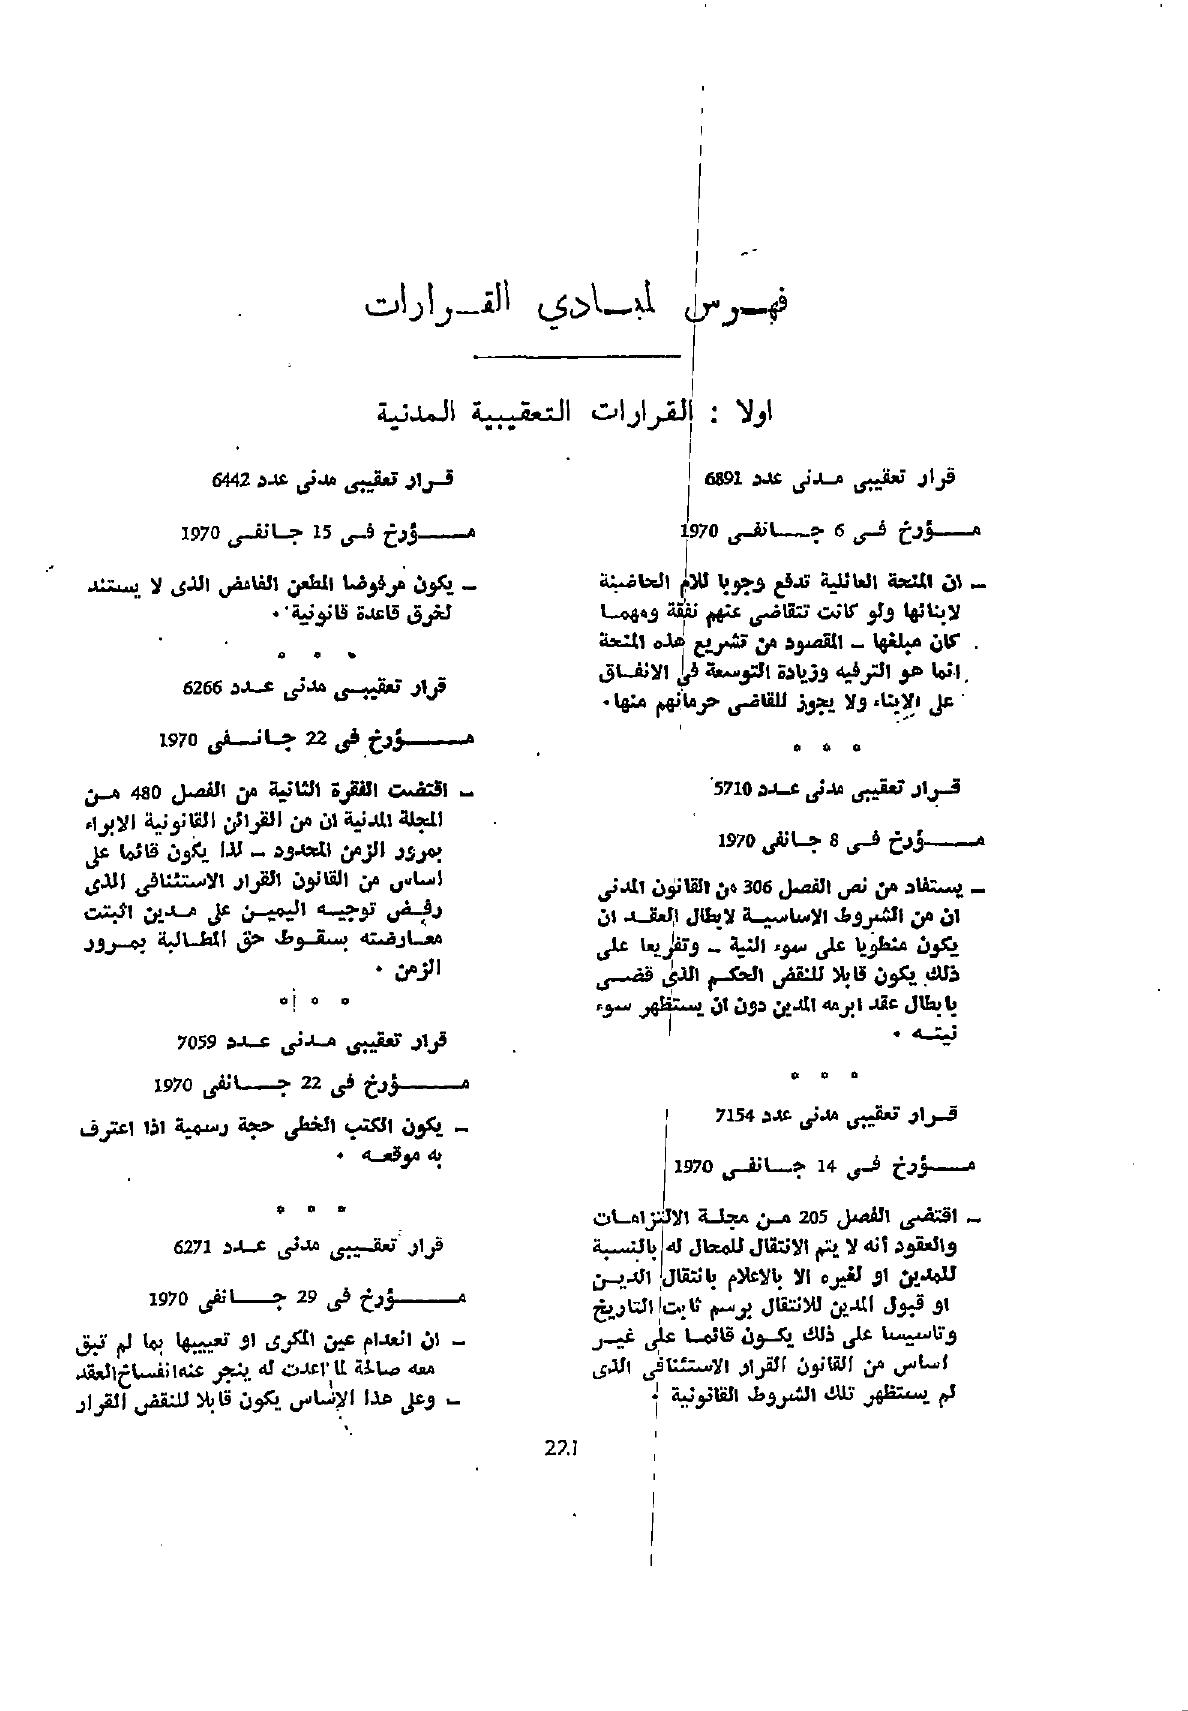 فهرس لمبادي القرارات
اولا : القرارات التعقيبية المدنية
قرار تعقيبى مدنى عدد 6891
مؤرخ فى 6 جانفى 1970
– ان المنحة العائلية تدفع وجوبا للام الحاضنة
لابنائها ولو كانت تتقاضى عنهم نفقة ومهما
كان مبلغها – المقصود من تشريع هذه المنحة
انما هو الترفيه وزيادة التوسعة فى الانفاق
على الابناء ولا يجوز للقاضى حرمانهم منها٠
٥ ٥ ٥
قرار تعقيبى مدنى عدد 5710
مؤرخ فى 8 جانفى 1970
– يستفاد من نص الفصل 306 من القانون المدنى
ان من الشروط الاساسية لابطال العقد ان
يكون منطويا على سوء النية – وتفريعا على
ذلك يكون قابلا للنقض الحكم الذى قضى
بابطال عقد ابرمه المدين دون ان يستظهر سوء
نيته ٠
٥ ٥ ٥
قرار تعقيبى مدنى عدد 7154
مؤرخ فى 14 جانفى 1970
– اقتضى الفصل 205 من مجلة الالتزامات
والعقود أنه لا يتم الانتقال للمحال له بالنسبة
للمدين او لغيره الا بالاعلام بانتقال الدين
او قبول المدين للانتقال برسم ثابت التاريخ
وتاسيسا على ذلك يكون قائما على غير
اساس من القانون القرار الاستئنافى الذى
لم يستظهر تلك الشروط القانونية ٠
قرار تعقيبى مدنى عدد 6442
مؤرخ فى 15 جانفى 1970
– يكون مرفوضا المطعن الغامض الذى لا يستند
لخرق قاعدة قانونية ٠
٥ ٥ ٥
قرار تعقيبى مدنى عدد 6266
مؤرخ فى 22 جانفى 1970
– اقتضت الفقرة الثانية من الفصل 480 من
المجلة المدنية ان من القرائن القانونية الابراء
بمرور الزمن المحدود – لذا يكون قائما على
أساس من القانون القرار الاستئنافى الذى
رفض توجيه اليمين على مدين اثبتت
معارضته بسقوط حق المطالبة بمرور
الزمن ٠
٥ ٥ ٥
قرار تعقيبى مدنى عدد 7059
مؤرخ فى 22 جانفى 1970
– يكون الكتب الخطى حجة رسمية اذا اعترف
به موقعه ٠
٥ ٥ ٥
قرار تعقيبى مدنى عدد 6271
مؤرخ فى 29 جانفى 1970
– ان انعدام عين المكرى او تعييبها بما لم تبق
معه صالحة لما اعدت له ينجر عنه انفساخ العقد
– وعلى هذا الاساس يكون قابلا للنقض القرار
221